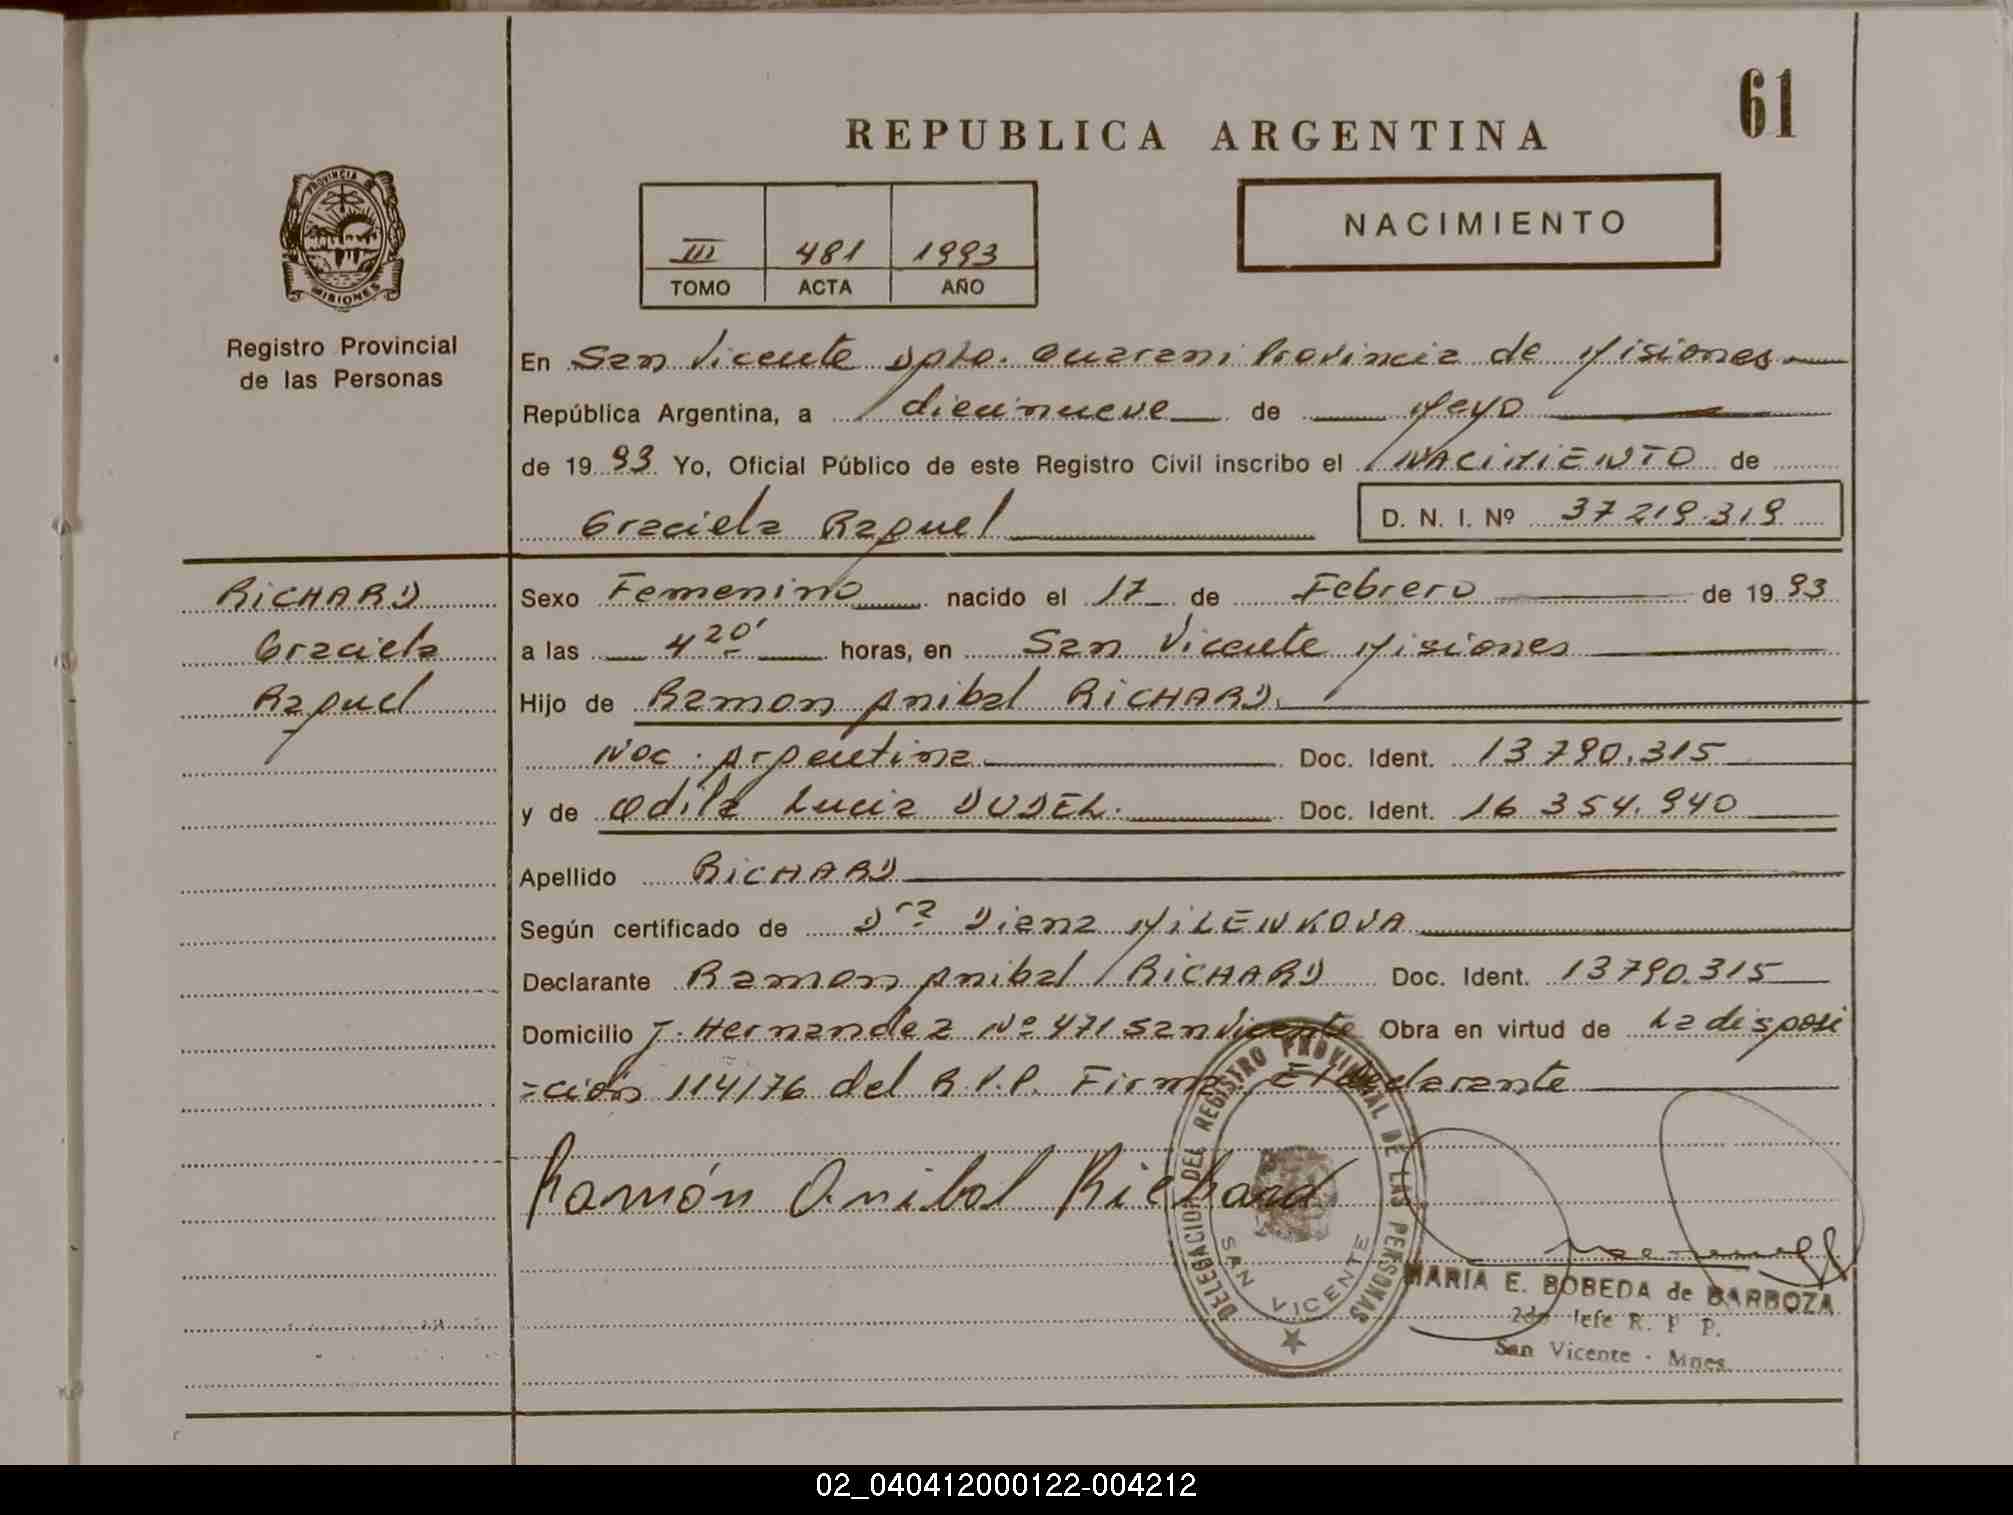 61
REPUBLICA ARGENTINA
NACIMIENTO
III 481 1993
TOMO ACTA AÑO
PROVINCIA DE
MISIONES
Registro Provincial
de las Personas
En San Vicente Dpto. Guarani Provincia de Misiones
República Argentina, a diecinueve de Mayo
de 1993 Yo, Oficial Público de este Registro Civil inscribo el NACIMIENTO de
Graciela Raquel D. N. I. Nº 37 219.319
RICHARD
Graciela
Raquel
Sexo Femenino nacido el 17 de Febrero de 1993
a las 4 20' horas, en San Vicente Misiones
Hijo de Ramon Anibal RICHARD.
Nac. Argentina Doc. Ident. 13 790.315
y de Odila Lucia DUDEL. Doc. Ident. 16 354.940
Apellido RICHARD
Según certificado de Dra Diana MILENKOVA
Declarante Ramon Anibal RICHARD Doc. Ident. 13790.315
Domicilio J. Hernandez Nº 471 San Vicente Obra en virtud de La disposi
=ción 114/76 del R.P.P. Firma El declarante
Ramón Anibal Richard
DELEGACION DEL REGISTRO PROVINCIAL DE LAS PERSONAS
SAN VICENTE
MARIA E. BOBEDA de BARBOZA
2do Jefe R. P P.
San Vicente - Mnes
02_040412000122-004212